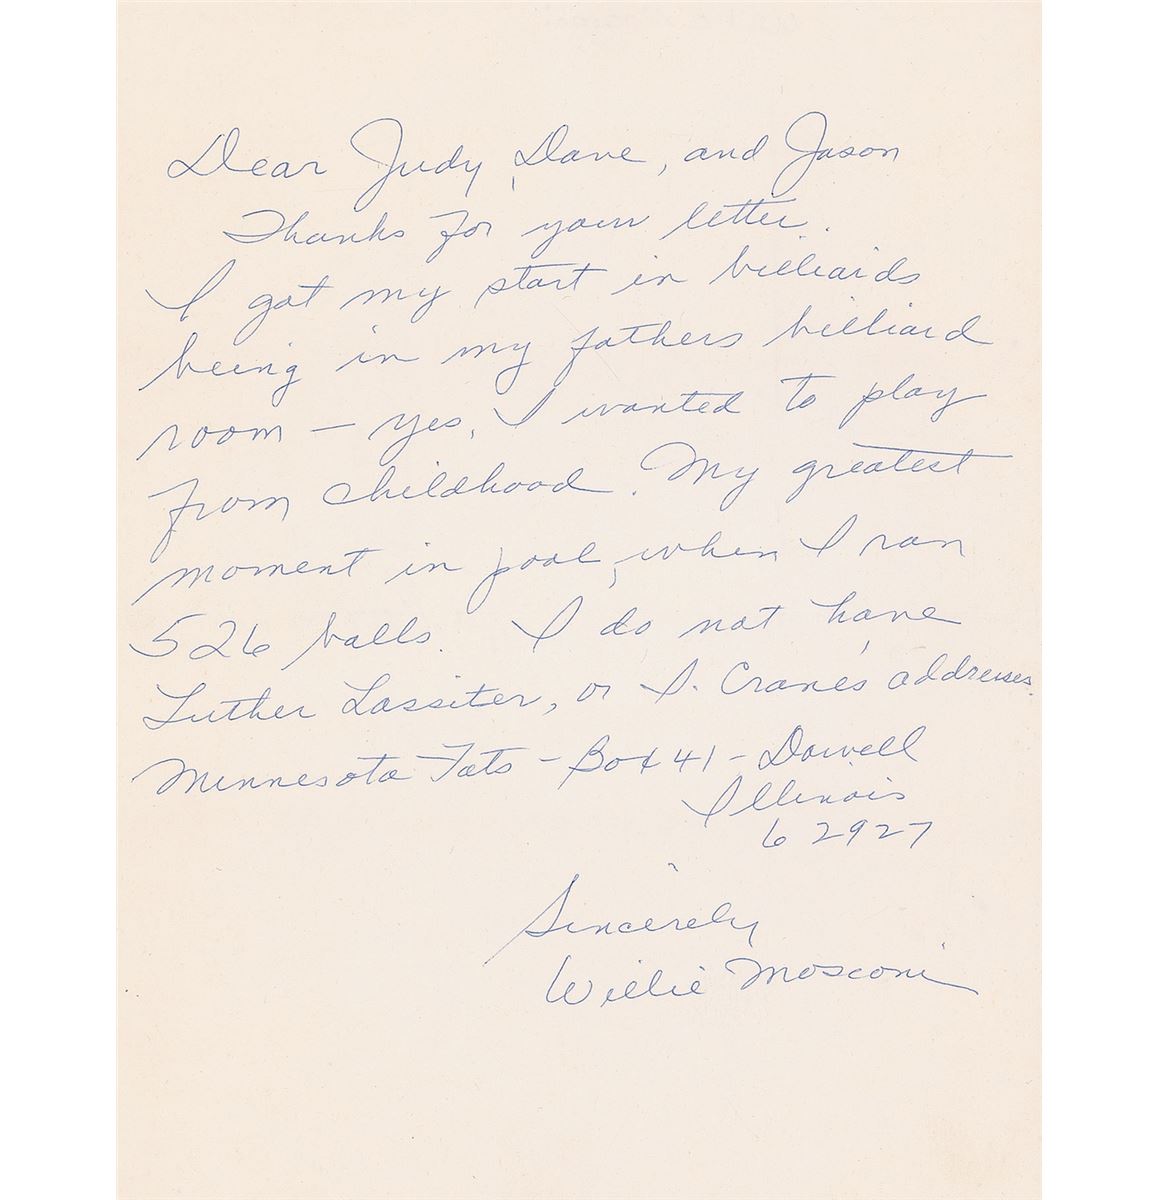 Dear Judy, Dave, and Jason
Thanks for your letter.
I got my start in billiards
being in my fathers billiard
room – yes, I wanted to play
from childhood. My greatest
moment in pool, when I ran
526 balls. I do not have
Luther Lassiter, or I. Crane's addresses.
Minnesota Fats – Box 41 – Dowell
Illinois
62927
Sincerely
Willie Mosconi